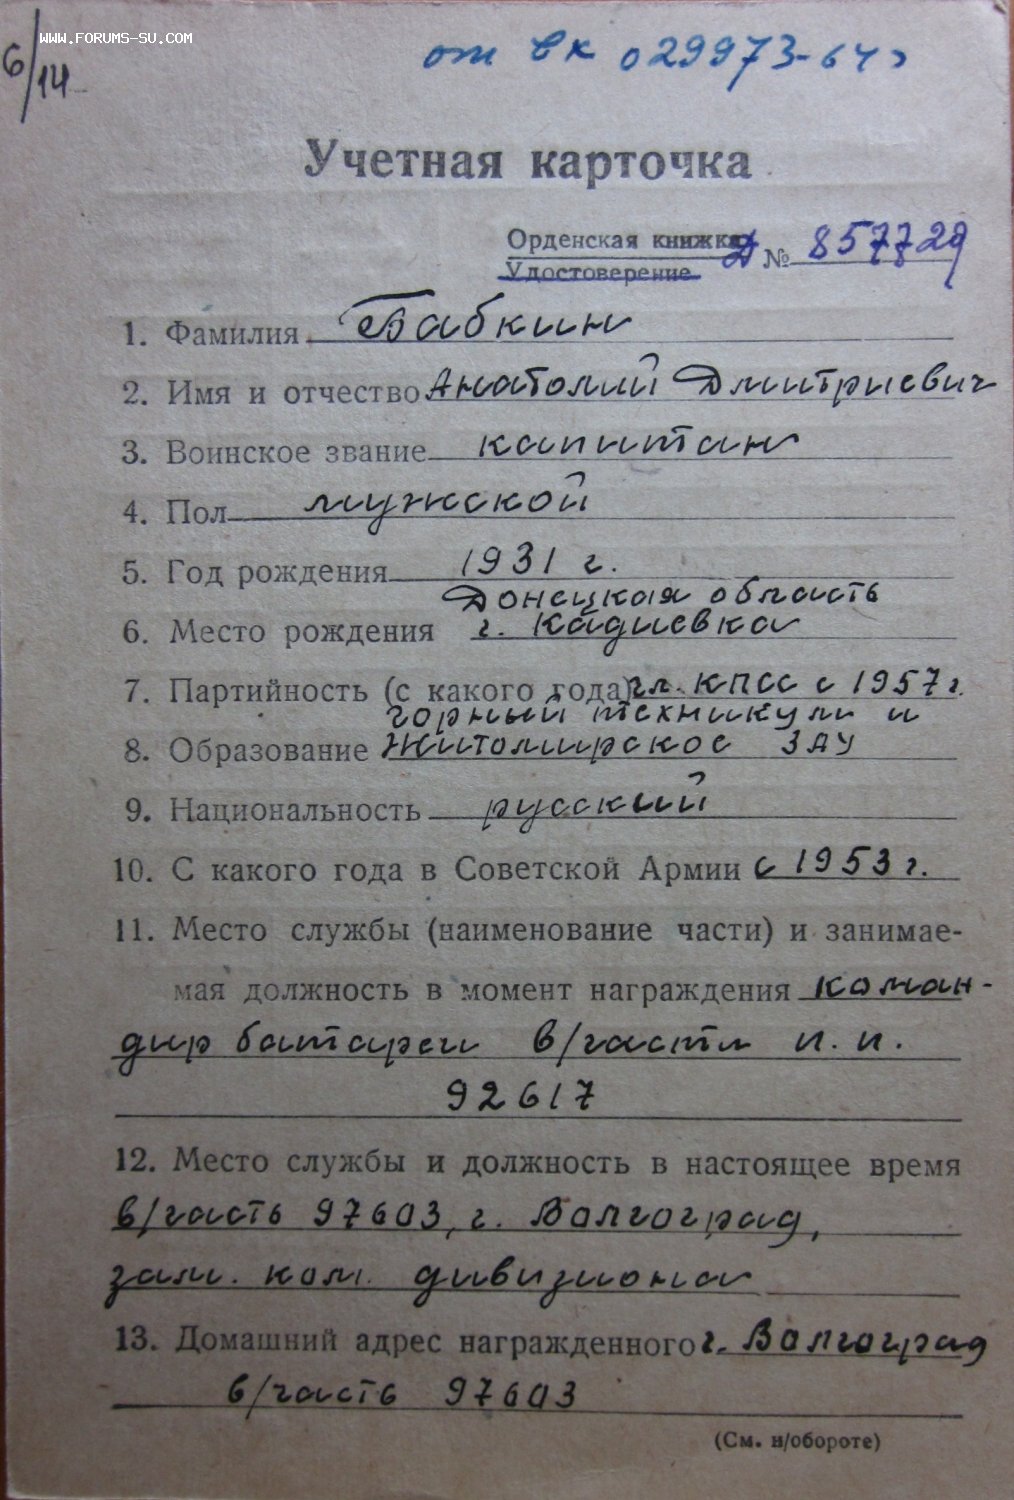 WWW.FORUMS-SU.COM
6/14
от вк 029973-64г
Учетная карточка
Орденская книжка
Удостоверение
Д № 857729
1. Фамилия Бабкин
2. Имя и отчество Анатолий Дмитриевич
3. Воинское звание капитан
4. Пол мужской
5. Год рождения 1931 г.
Донецкая область
6. Место рождения г. Кадиевка
7. Партийность (с какого года) чл. КПСС с 1957 г.
горный техникум и
8. Образование Житомирское ЗАУ
9. Национальность русский
10. С какого года в Советской Армии с 1953 г.
11. Место службы (наименование части) и занимае-
мая должность в момент награждения коман-
дир батареи в/части п.п.
92617
12. Место службы и должность в настоящее время
в/часть 97603, г. Волгоград,
зам. ком. дивизиона
13. Домашний адрес награжденного г. Волгоград
в/часть 97603
(См. н/обороте)